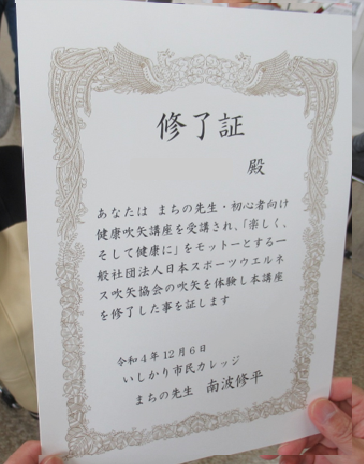 修了証
殿
あなたは まちの先生・初心者向け
健康吹矢講座を受講され、「楽しく、
そして健康に」をモットーとする一
般社団法人日本スポーツウエルネ
ス吹矢協会の吹矢を体験し本講座
を修了した事を証します
令和4年12月6日
いしかり市民カレッジ
まちの先生 南波修平